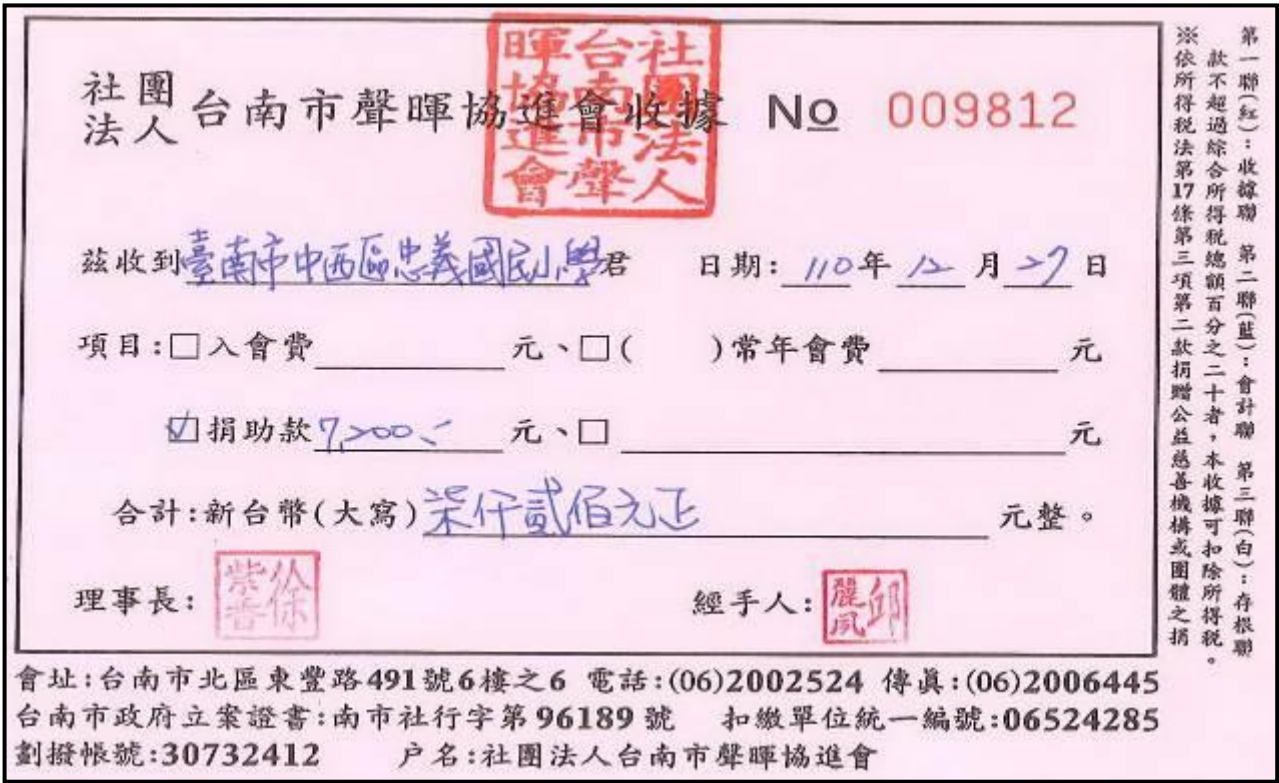 社團法人 台南市聲暉協進會收據 No 009812
社團法人台南市聲暉協進會
茲收到臺南市中西區忠義國民小學君 日期:110年12月27日
項目:□入會費 元、□( )常年會費 元
☑捐助款7,200.- 元、□ 元
合計:新台幣(大寫)柒仟貳佰元正 元整。
理事長: 徐紫香 經手人: 邱麗夙
會址:台南市北區東豐路491號6樓之6 電話:(06)2002524 傳真:(06)2006445
台南市政府立案證書:南市社行字第96189號 扣繳單位統一編號:06524285
劃撥帳號:30732412 戶名:社團法人台南市聲暉協進會
第一聯(紅):收據聯 第二聯(藍):會計聯 第三聯(白):存根聯
※依所得稅法第17條第三項第二款捐贈公益慈善機構或團體之捐
款不超過綜合所得稅總額百分之二十者,本收據可扣除所得稅。